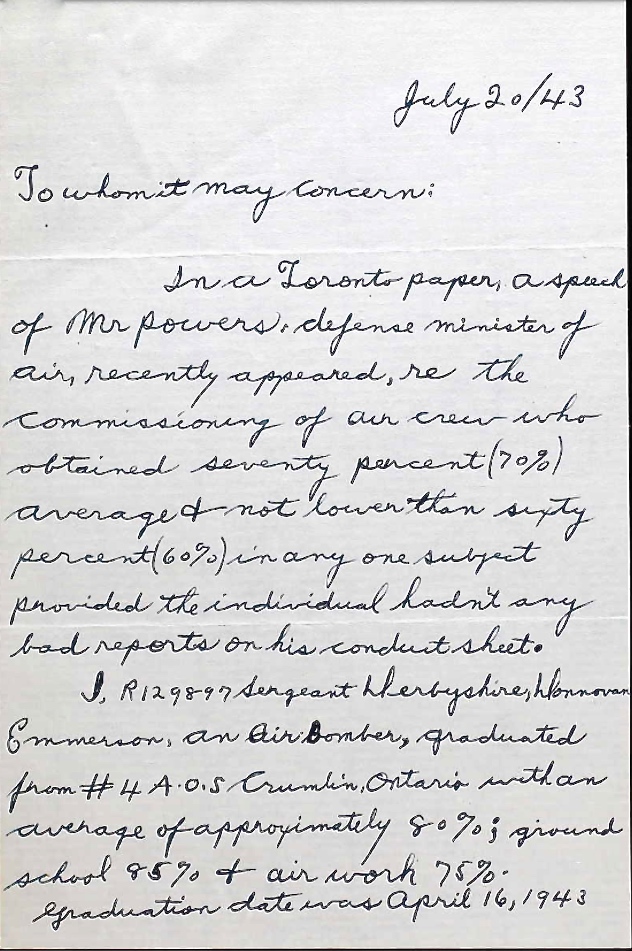 July 20/43
To whom it may concern:
In a Toronto paper, a speech
of Mr Powers, defense minister of
air, recently appeared, re the
commissioning of air crew who
obtained seventy percent (70%)
average & not lower than sixty
percent (60%) in any one subject
provided the individual hadn't any
bad reports on his conduct sheet.
I, R129897 Sergeant Derbyshire, Donnovan
Emmerson, an Air Bomber, graduated
from # 4 A.O.S Crumlin, Ontario with an
average of approximately 80%; ground
school 85% & air work 75%.
Graduation date was April 16, 1943